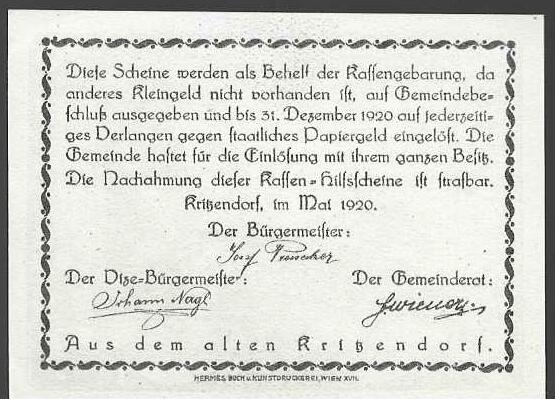 Diese Scheine werden als Behelf der Kassengebarung, da
anderes Kleingeld nicht vorhanden ist, auf Gemeindebe-
schluß ausgegeben und bis 31. Dezember 1920 auf jederzeiti-
ges Verlangen gegen staatliches Papiergeld eingelöst. Die
Gemeinde haftet für die Einlösung mit ihrem ganzen Besitz.
Die Nachahmung dieser Kassen-Hilfsscheine ist strafbar.
Kritzendorf, im Mai 1920.
Der Bürgermeister:
Josef
Der Vize-Bürgermeister: Der Gemeinderat:
Johann Nagl
Aus dem alten Kritzendorf.
HERMES, BUCH u. KUNSTDRUCKEREI, WIEN XVII.